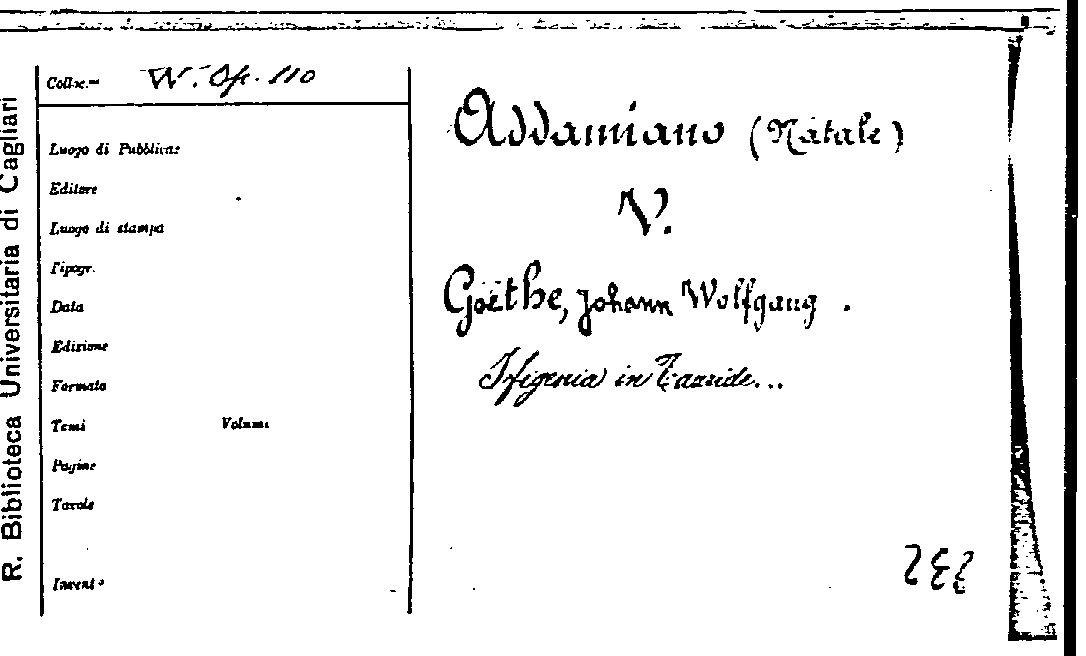 R. Biblioteca Universitaria di Cagliari
Colloc.ne W. Op. 110
Luogo di Pubblicaz
Editore
Luogo di stampa
Tipogr.
Data
Edizione
Formato
Tomi Volumi
Pagine
Tavole
Invent.o
Addamiano (Natale)
V.
Goëthe, Johann Wolfgang.
Ifigenia in Tauride...